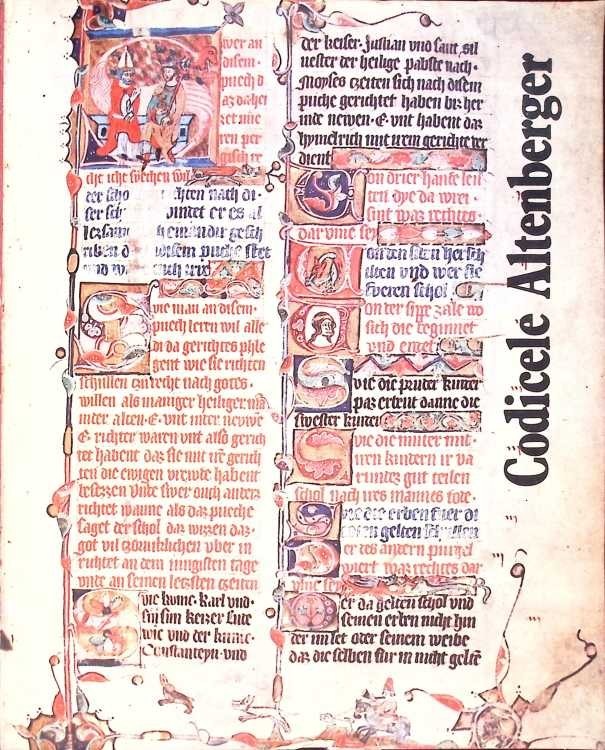 wer an
disem
puech d
az da hei
zet nüe
ren per
gisch re
che iche sprechen wil
der scho
chten nach di
ser sch
vindet er es al
lezsam
hemander gesch
riben
disem puche stet
vnd w
Swie man an disem
puech leren wil alle
di da gerichtes phle
gent wie sie richten
schullen czu recht nach gotes
willen als maniger heiliger ma
inter alten . E . vnt inter newe
E . richter waren vnt also gerich
tet habent daz sie mit irē gerich
ten die ewigen vrewde habent
besezzen vnde swer ouch anders
richtet wanne als daz pueche
saget der schol daz wizzen daz
got vil czorniklichen vber in
richtet an dem iungisten tage
vnde an seinen lesten czeiten
Swie kunic Karl vnd
syn sun keizer Lute
wic vnd der kunic
Constanteyn vnd
der keiser Justian vnd sant sil
uester der heilige pabste nach
Moyses czeiten sich nach disem
puche gerichtet haben biz her
inde newen . E . vnt habent daz
hymelrich mit irem gerichte ver
dient
on drier hande leu
ten dye da vrei
sint waz rechtes
dar vme sey
on den siben hersch
ilten vnd wer sie
fveren schol
on der sippe zale wo
sich die beginnet
vnd endet
Swie die pruder kinder
paz erbent danne die
swester kinder
Swie die muter mit
iren kindern ir va
rundez gut teilen
schol nach ires mannes tode
Swie die erben fuer di
er des andern purgel
wirt waz rechtes dar
vme sey
er da gelten schol vnd
seinen erben nicht hin
der im let oder seinem weibe
daz die selben für in nicht geltē
Codicele Altenberger